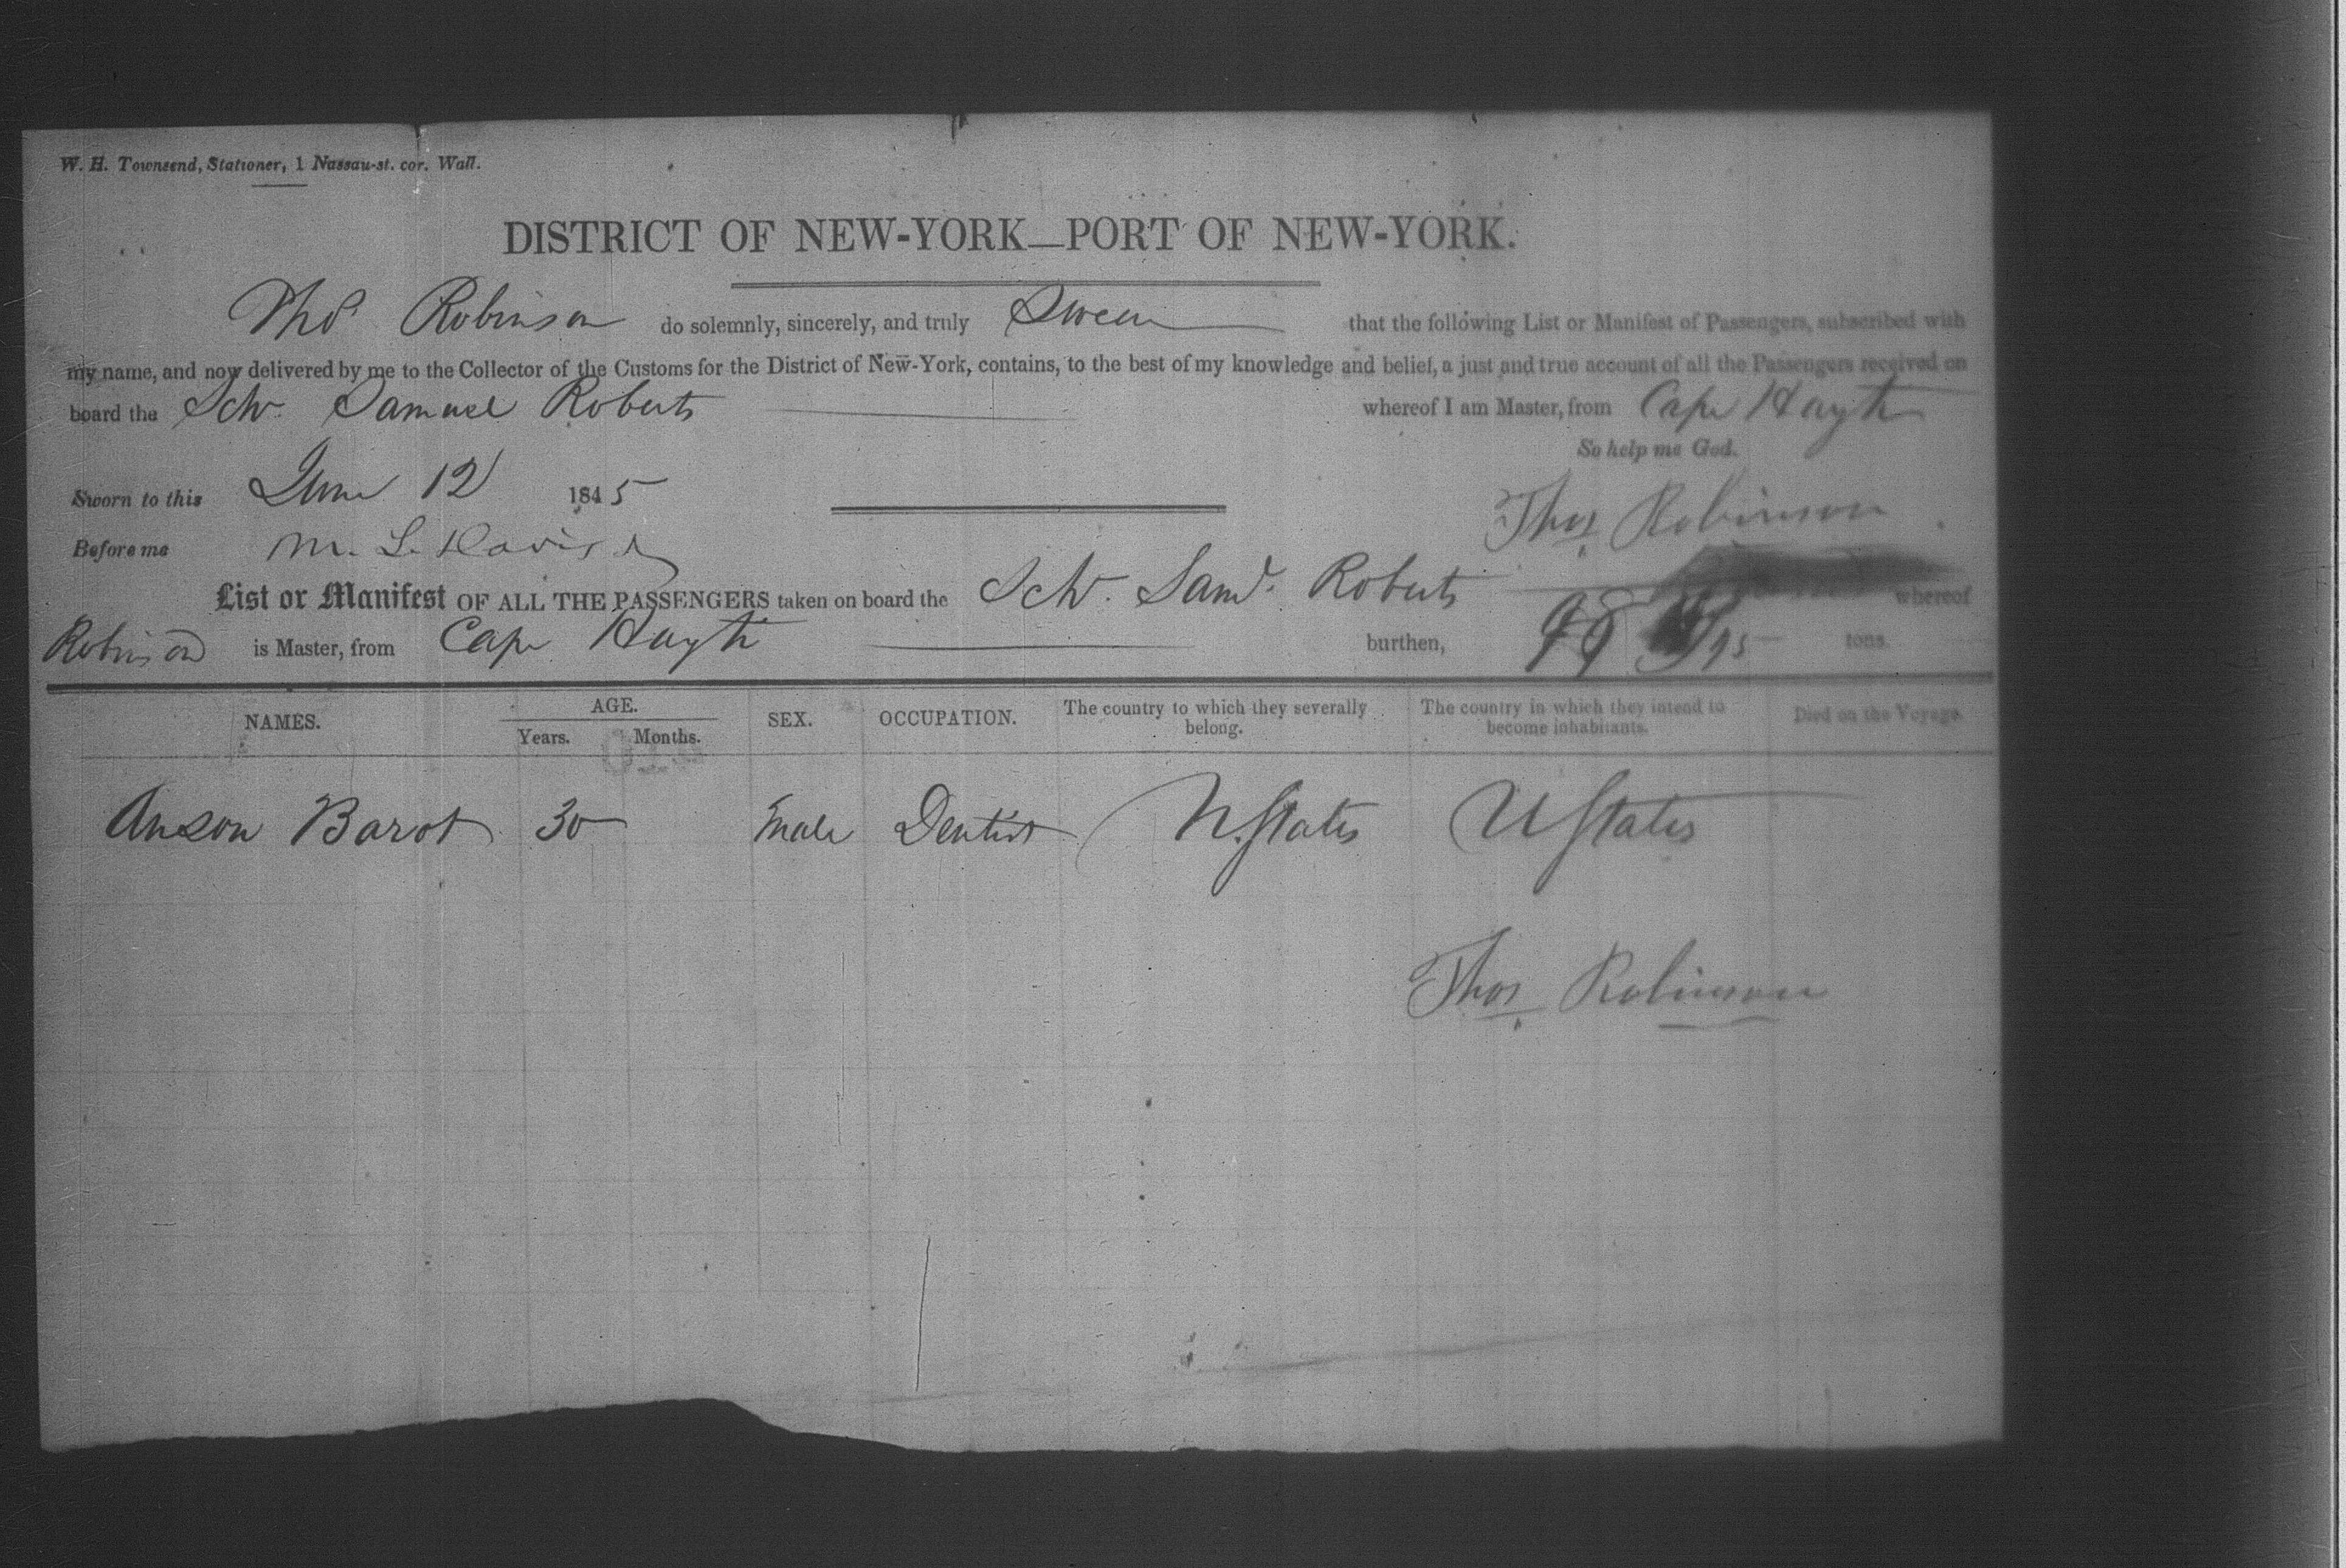 W. H. Townsend, Stationer, 1 Nassau-st. cor. Wall.
DISTRICT OF NEW-YORK—PORT OF NEW-YORK.
Thos Robinson do solemnly, sincerely, and truly Swear that the following List or Manifest of Passengers, subscribed with
my name, and now delivered by me to the Collector of the Customs for the District of New-York, contains, to the best of my knowledge and belief, a just and true account of all the Passengers received on
board the Schr. Samuel Roberts whereof I am Master, from Cape Hayti
So help me God.
Sworn to this June 12 1845
Thos Robinson
Before me M. L. Davis
List or Manifest OF ALL THE PASSENGERS taken on board the Schr. Saml. Roberts whereof
Robinson is Master, from Cape Hayti burthen, 98 /95 tons.
NAMES. AGE. SEX. OCCUPATION. The country to which they severally belong. The country in which they intend to become inhabitants. Died on the Voyage.
Years. Months.
Anson Barot 30 male Dentist U. States U States
Thos Robinson